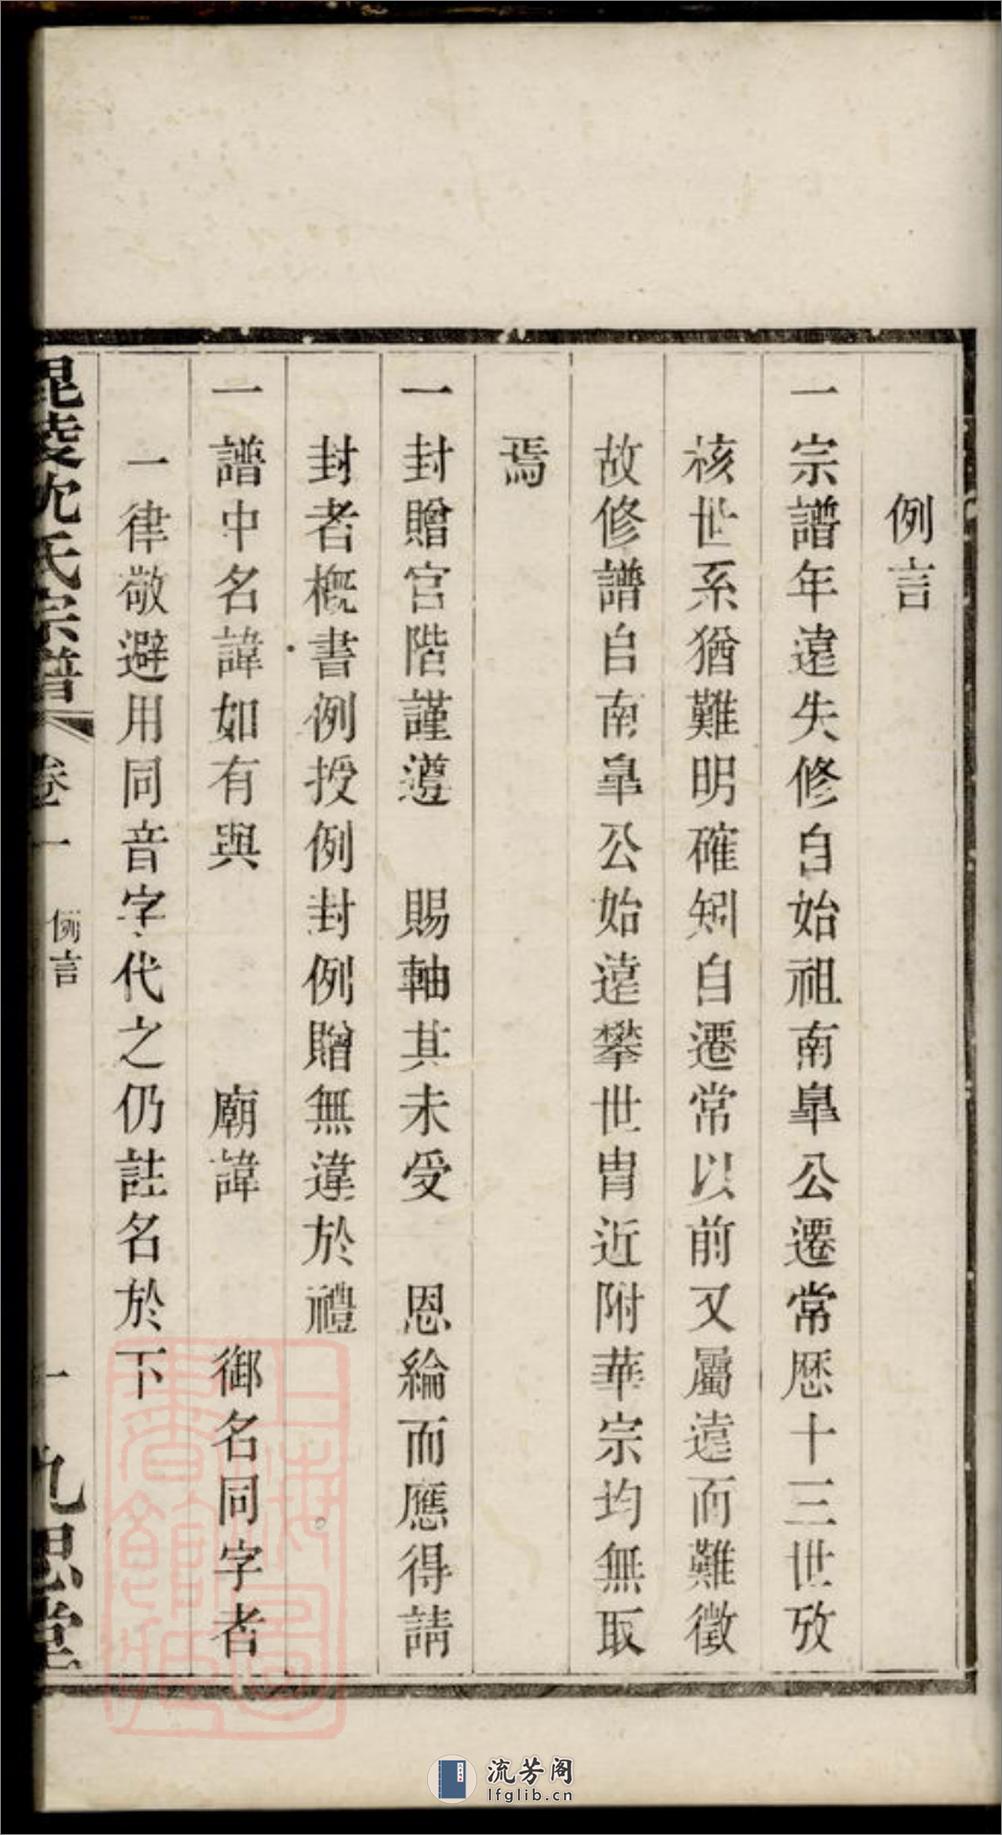 例言
一宗譜年遠失修自始祖南臯公遷常歷十三世攷
核世系猶難明確矧自遷常以前又屬遠而難徵
故修譜自南臯公始遠攀世胄近附華宗均無取
焉
一封贈官階謹遵　賜軸其未受　恩綸而應得請
封者概書例授例封例贈無違於禮
一譜中名諱如有與　　　廟諱　　御名同字者
一律敬避用同音字代之仍註名於下
毘陵沈氏宗譜　卷一　例言　一　九思堂
上海圖書館藏
流芳阁
lfglib.cn